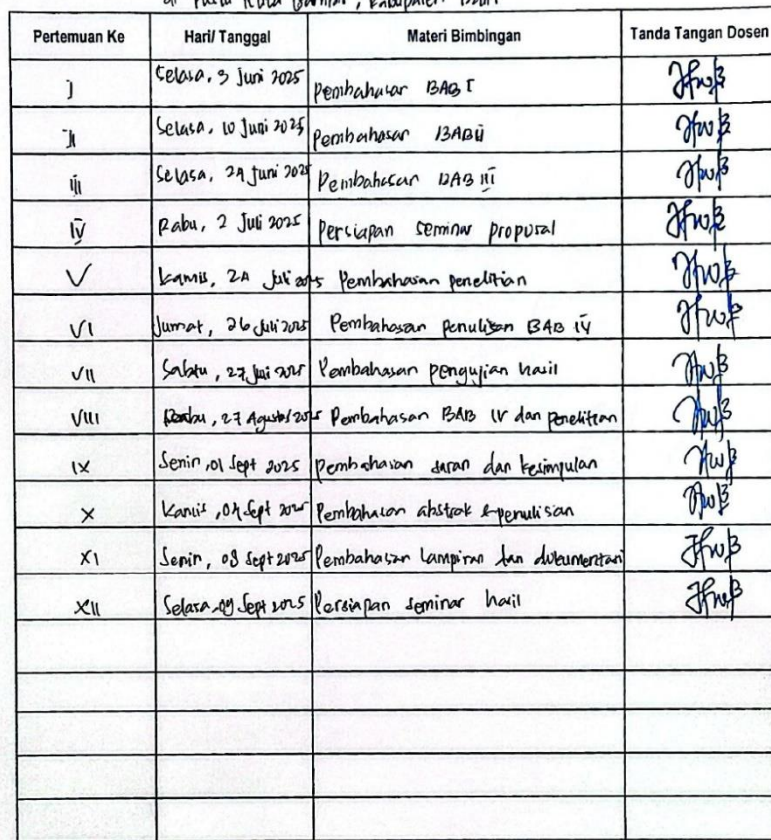 di Kuta
Pertemuan Ke Hari/ Tanggal Materi Bimbingan Tanda Tangan Dosen
I Selasa, 3 Juni 2025 Pembahasan BAB I
II Selasa, 10 Juni 2025 Pembahasan BAB II
III Selasa, 24 Juni 2025 Pembahasan BAB III
IV Rabu, 2 Juli 2025 Persiapan seminar proposal
V Kamis, 24 Juli 2025 Pembahasan penelitian
VI Jumat, 26 Juli 2025 Pembahasan penulisan BAB IV
VII Sabtu, 27 Juli 2025 Pembahasan pengujian hasil
VIII Rabu, 27 Agustus 2025 Pembahasan BAB IV dan penelitian
IX Senin, 01 Sept 2025 Pembahasan saran dan kesimpulan
X Kamis, 04 Sept 2025 Pembahasan abstrak & penulisan
XI Senin, 08 Sept 2025 Pembahasan Lampiran dan dokumentasi
XII Selasa, 09 Sept 2025 Persiapan seminar hasil